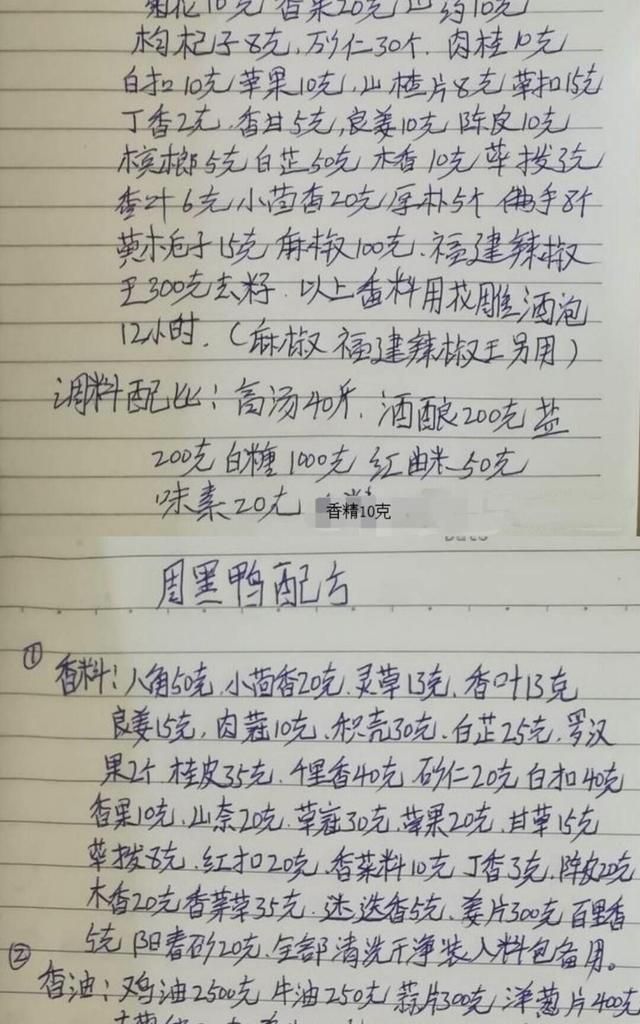 菊花10克 香果20克 山药10克
枸杞子8克, 砂仁30个. 肉桂10克
白扣10克 草果10克, 山楂片8克 草扣15克
丁香2克 香甘5克, 良姜10克 陈皮10克
槟榔5克 白芷50克 木香10克 荜拨3克
香叶6克 小茴香20克 厚朴5个 佛手8个
黄木栀子15克 麻椒100克、福建辣椒
王300克去籽. 以上香料用花雕酒泡
12小时. (麻椒 福建辣椒王另用)
调料配比: 高汤40斤. 酒酿200克 盐
200克 白糖1000克 红曲米50克
味素20克 香精10克
周黑鸭配方
① 香料: 八角50克, 小茴香20克, 灵草13克, 香叶13克
良姜15克, 肉蔻10克、枳壳30克、白芷25克, 罗汉
果2个 桂皮35克、千里香40克 砂仁20克 白扣40克
香果10克, 山奈20克. 草蔻30克 草果20克、甘草15克
荜拨8克, 红扣20克、香菜料10克 丁香3克, 陈皮20克
木香20克 香茅草35克、迷迭香5克、姜片300克 百里香
5克 阳春砂20克、全部清洗干净装入料包备用。
② 香油: 鸡油2500克 牛油250克 蒜片300克 洋葱片400克